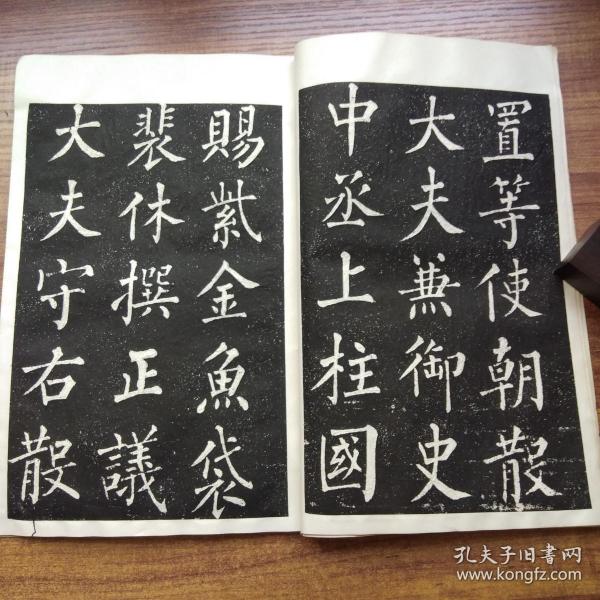 置等使朝散
大夫兼御史
中丞上柱國
賜紫金魚袋
裴休撰正議
大夫守右散
孔夫子旧书网
www.kongfz.com